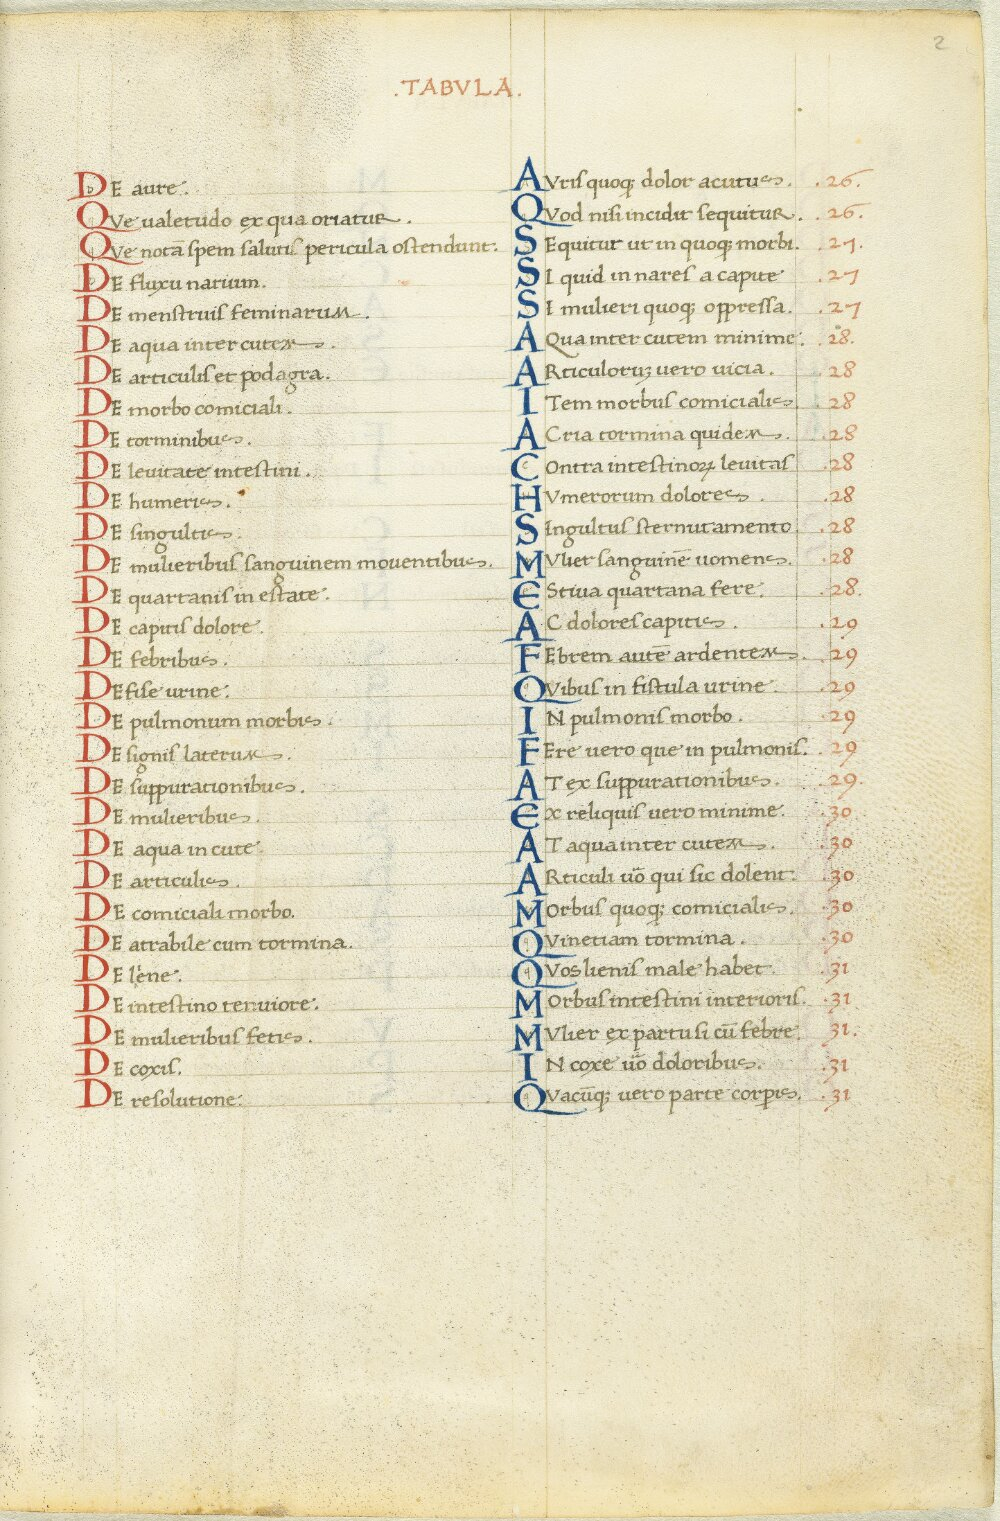 2
.TABVLA.
DE aure. AVris quoq; dolor acutus. .26.
QVe ualetudo ex qua oriatur. QVod nisi incidit sequitur. .26.
QVe nota spem salutis pericula ostendunt. SEquitur ut in quoq; morbi. .27.
DE fluxu narium. SI quid in nares a capite .27
DE menstruis feminarum. SI mulieri quoq; oppressa. .27
DE aqua inter cutem. AQua inter cutem minime. .28.
DE articulis et podagra. ARticuloruꝫ uero uicia. .28
DE morbo comiciali. ITem morbus comicialis. .28
DE torminibus. ACria tormina quidem. .28
DE leuitate intestini. COntra intestinoꝝ leuitas .28
DE humeris. HVmerorum dolores. .28
DE singultis. SIngultus sternutamento. .28
DE mulieribus sanguinem mouentibus. MVlier sanguinē uomens. .28
DE quartanis in estate. EStiua quartana fere. .28.
DE capitis dolore. AC dolores capitis. .29
DE febribus. FEbrem autē ardentem. .29
DE fise urine. QVibus in fistula urine. .29
DE pulmonum morbis. IN pulmonis morbo. .29
DE signis laterum. FEre uero que in pulmonis. .29
DE suppurationibus. AT ex suppurationibus. .29.
DE mulieribus. Ex reliquis uero minime. .30
DE aqua in cute. AT aqua inter cutem. .30
DE articulis. ARticuli uō qui sic dolent. .30
DE comiciali morbo. MOrbus quoq; comicialis. .30
DE atrabile cum tormina. QVinetiam tormina. .30
DE liene. QVos lienis male habet. .31
DE intestino tenuiore. MOrbus intestini interioris. .31
DE mulieribus fetis. MVlier ex partu si cū febre. .31.
DE coxis. IN coxe uō doloribus. .31
DE resolutione. QVacūq; uero parte corpis. .31